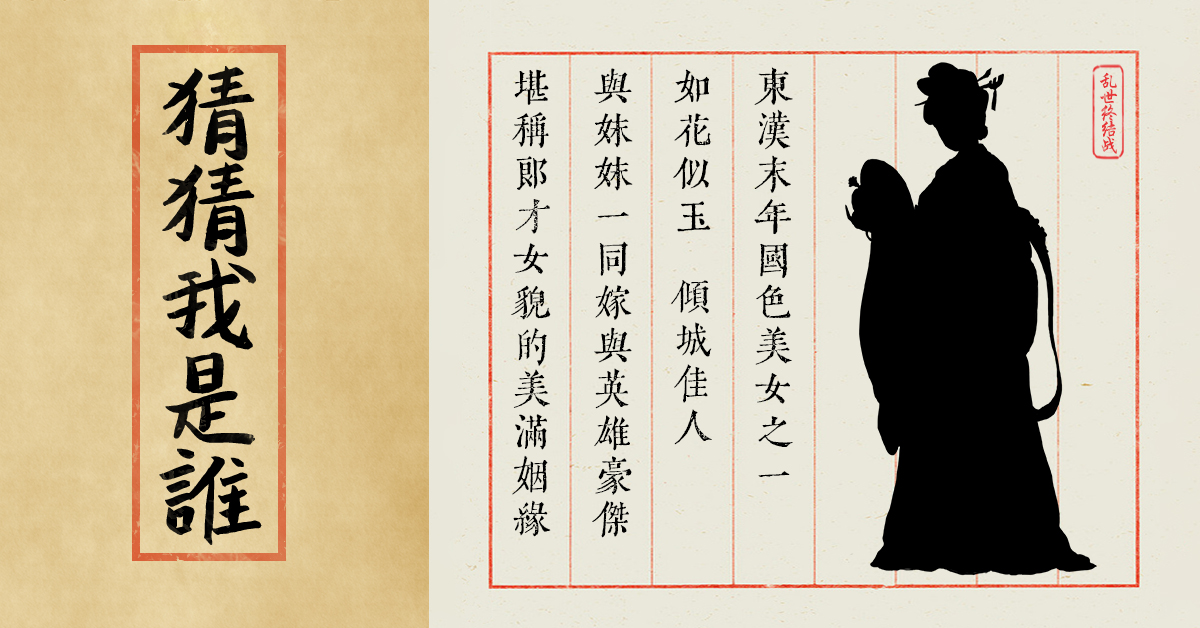 猜猜我是誰
乱世终结战
東漢末年國色美女之一
如花似玉 傾城佳人
與妹妹一同嫁與英雄豪傑
堪稱郎才女貌的美滿姻緣